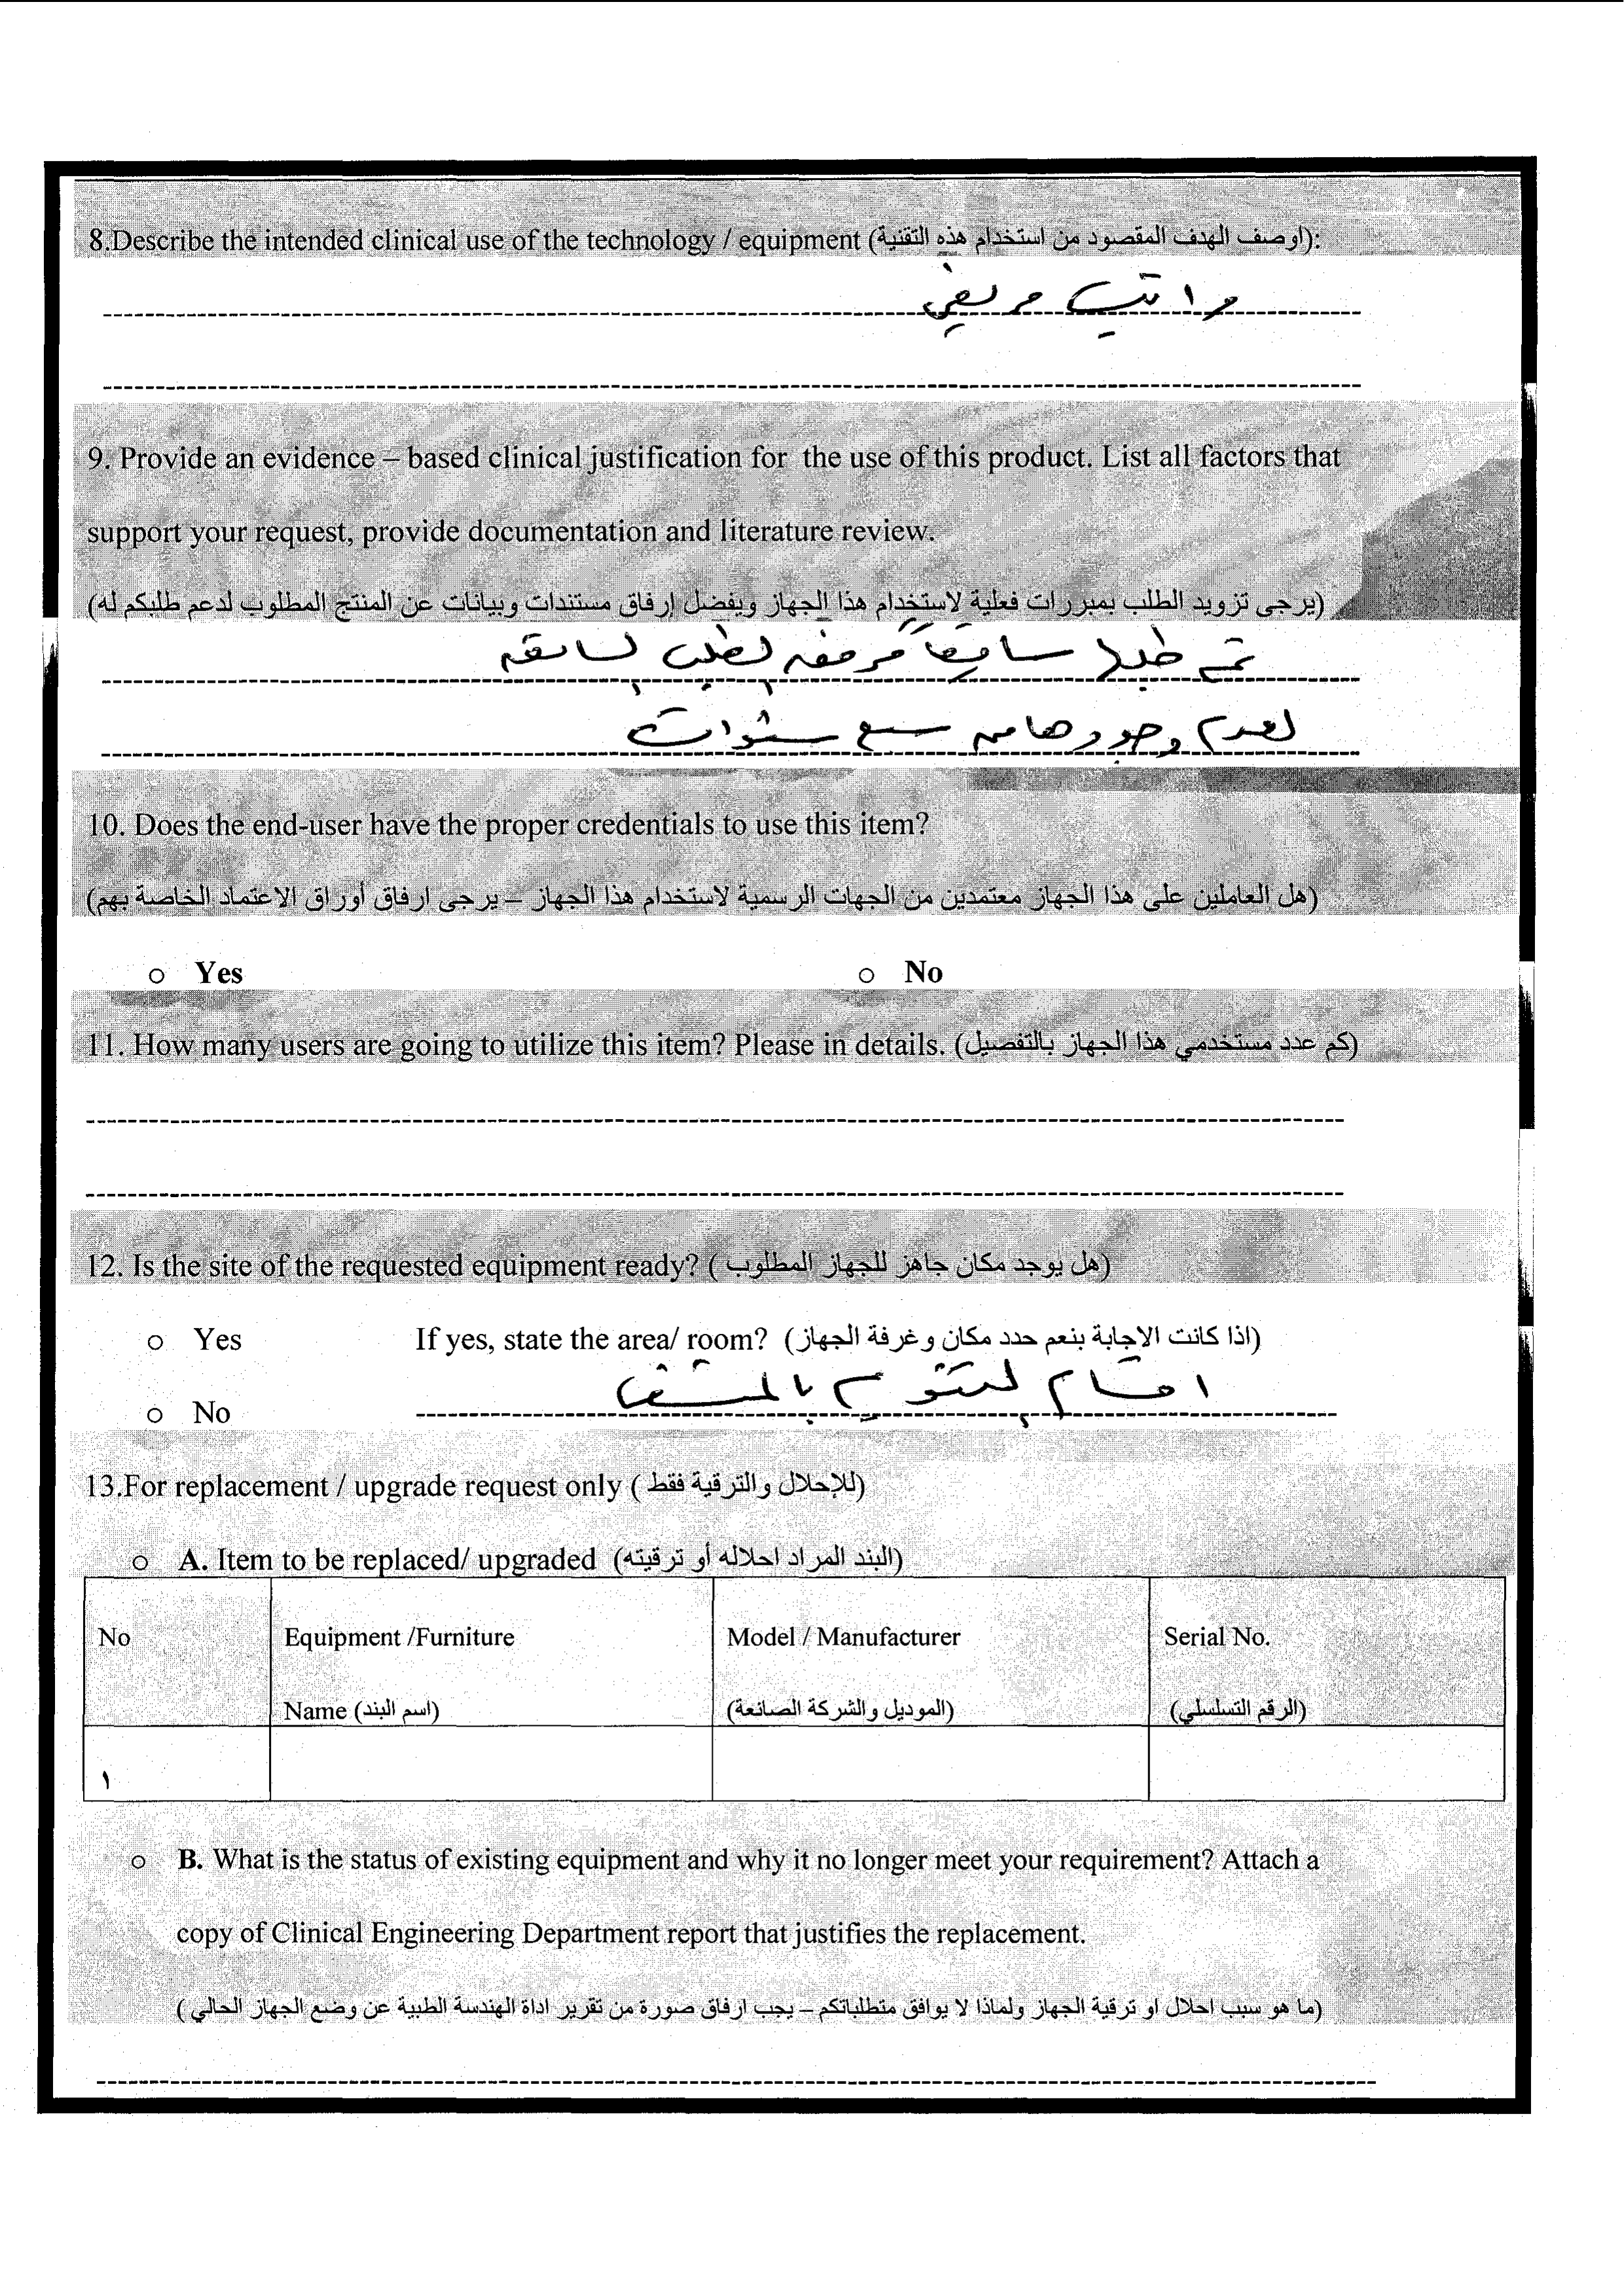 8.Describe the intended clinical use of the technology / equipment (اوصف الهدف المقصود من استخدام هذه التقنية):
مراتب مرضى
9. Provide an evidence – based clinical justification for the use of this product. List all factors that
support your request, provide documentation and literature review.
(يرجى تزويد الطلب بمبررات فعلية لاستخدام هذا الجهاز ويفضل إرفاق مستندات وبيانات عن المنتج المطلوب لدعم طلبكم له)
تم طلبها سابقا مرفقه لطلب لسابقه
لعدم وجودها من سبع سنوات
10. Does the end-user have the proper credentials to use this item?
(هل العاملين على هذا الجهاز معتمدين من الجهات الرسمية لاستخدام هذا الجهاز – يرجى ارفاق أوراق الاعتماد الخاصة بهم)
○ Yes ○ No
11. How many users are going to utilize this item? Please in details. (كم عدد مستخدمي هذا الجهاز بالتفصيل)
12. Is the site of the requested equipment ready? (هل يوجد مكان جاهز للجهاز المطلوب )
○ Yes If yes, state the area/ room? (اذا كانت الاجابة بنعم حدد مكان وغرفة الجهاز)
○ No اقسام لتنويم بالمستشفى
13.For replacement / upgrade request only (للإحلال والترقية فقط )
○ A. Item to be replaced/ upgraded (البند المراد احلاله أو ترقيته)
No Equipment /Furniture Model / Manufacturer Serial No.
Name (اسم البند) (الموديل والشركة الصانعة) (الرقم التسلسلي)
١
○ B. What is the status of existing equipment and why it no longer meet your requirement? Attach a
copy of Clinical Engineering Department report that justifies the replacement.
(ما هو سبب احلال او ترقية الجهاز ولماذا لا يوافق متطلباتكم – يجب ارفاق صورة من تقرير اداة الهندسة الطبية عن وضع الجهاز الحالي )